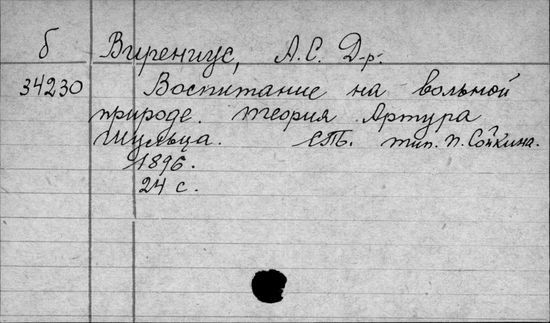 б Вирениус, А.С. Д-р.
34230 Воспитание на вольной
природе. теория Артура
Шульца. СПБ. тип. П. Сойкина.
1896.
24 с.